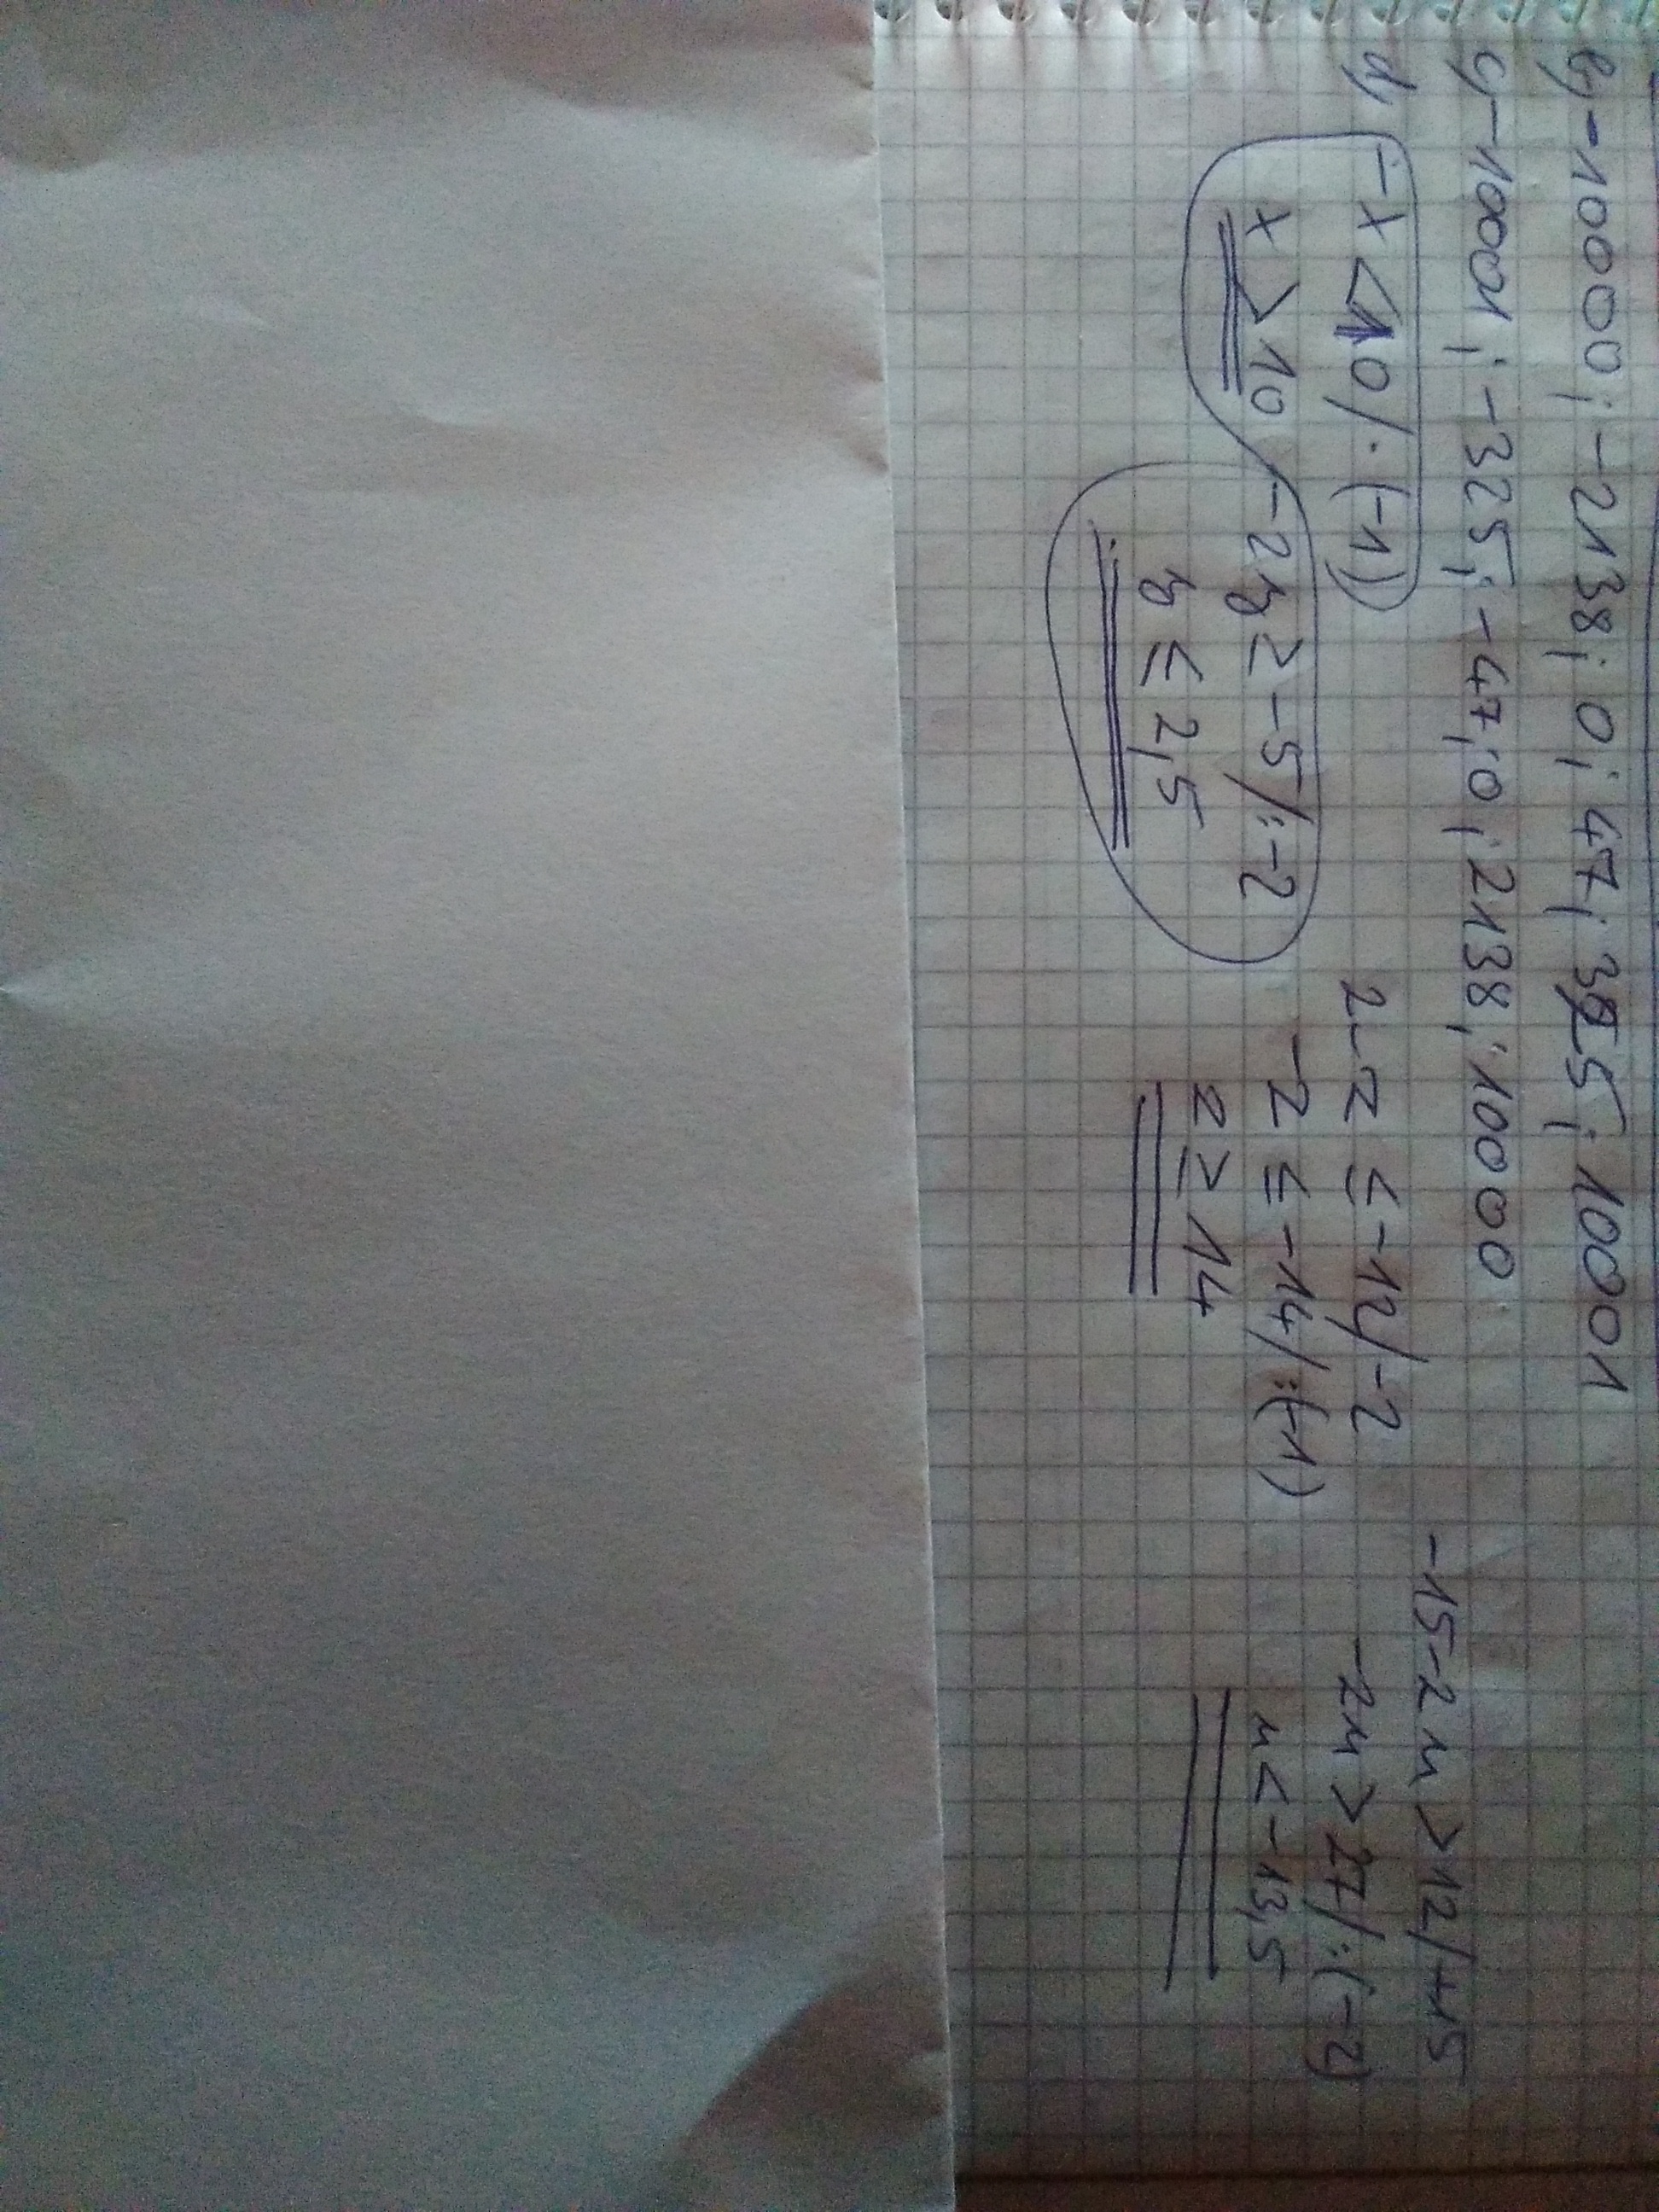 b, -10000; -2138; 0; 47; 325; 10001
c, -10001; -325; -47; 0; 2138; 10000
d, -x < 10 / · (-1)
x > 10
-2y ≥ -5 / : -2
y ≤ 2,5
2-z ≤ -12 / -2
-z ≤ -14 / :(-1)
z ≥ 14
-15-2u > 12 / +15
-2u > 27 / :(-2)
u < -13,5